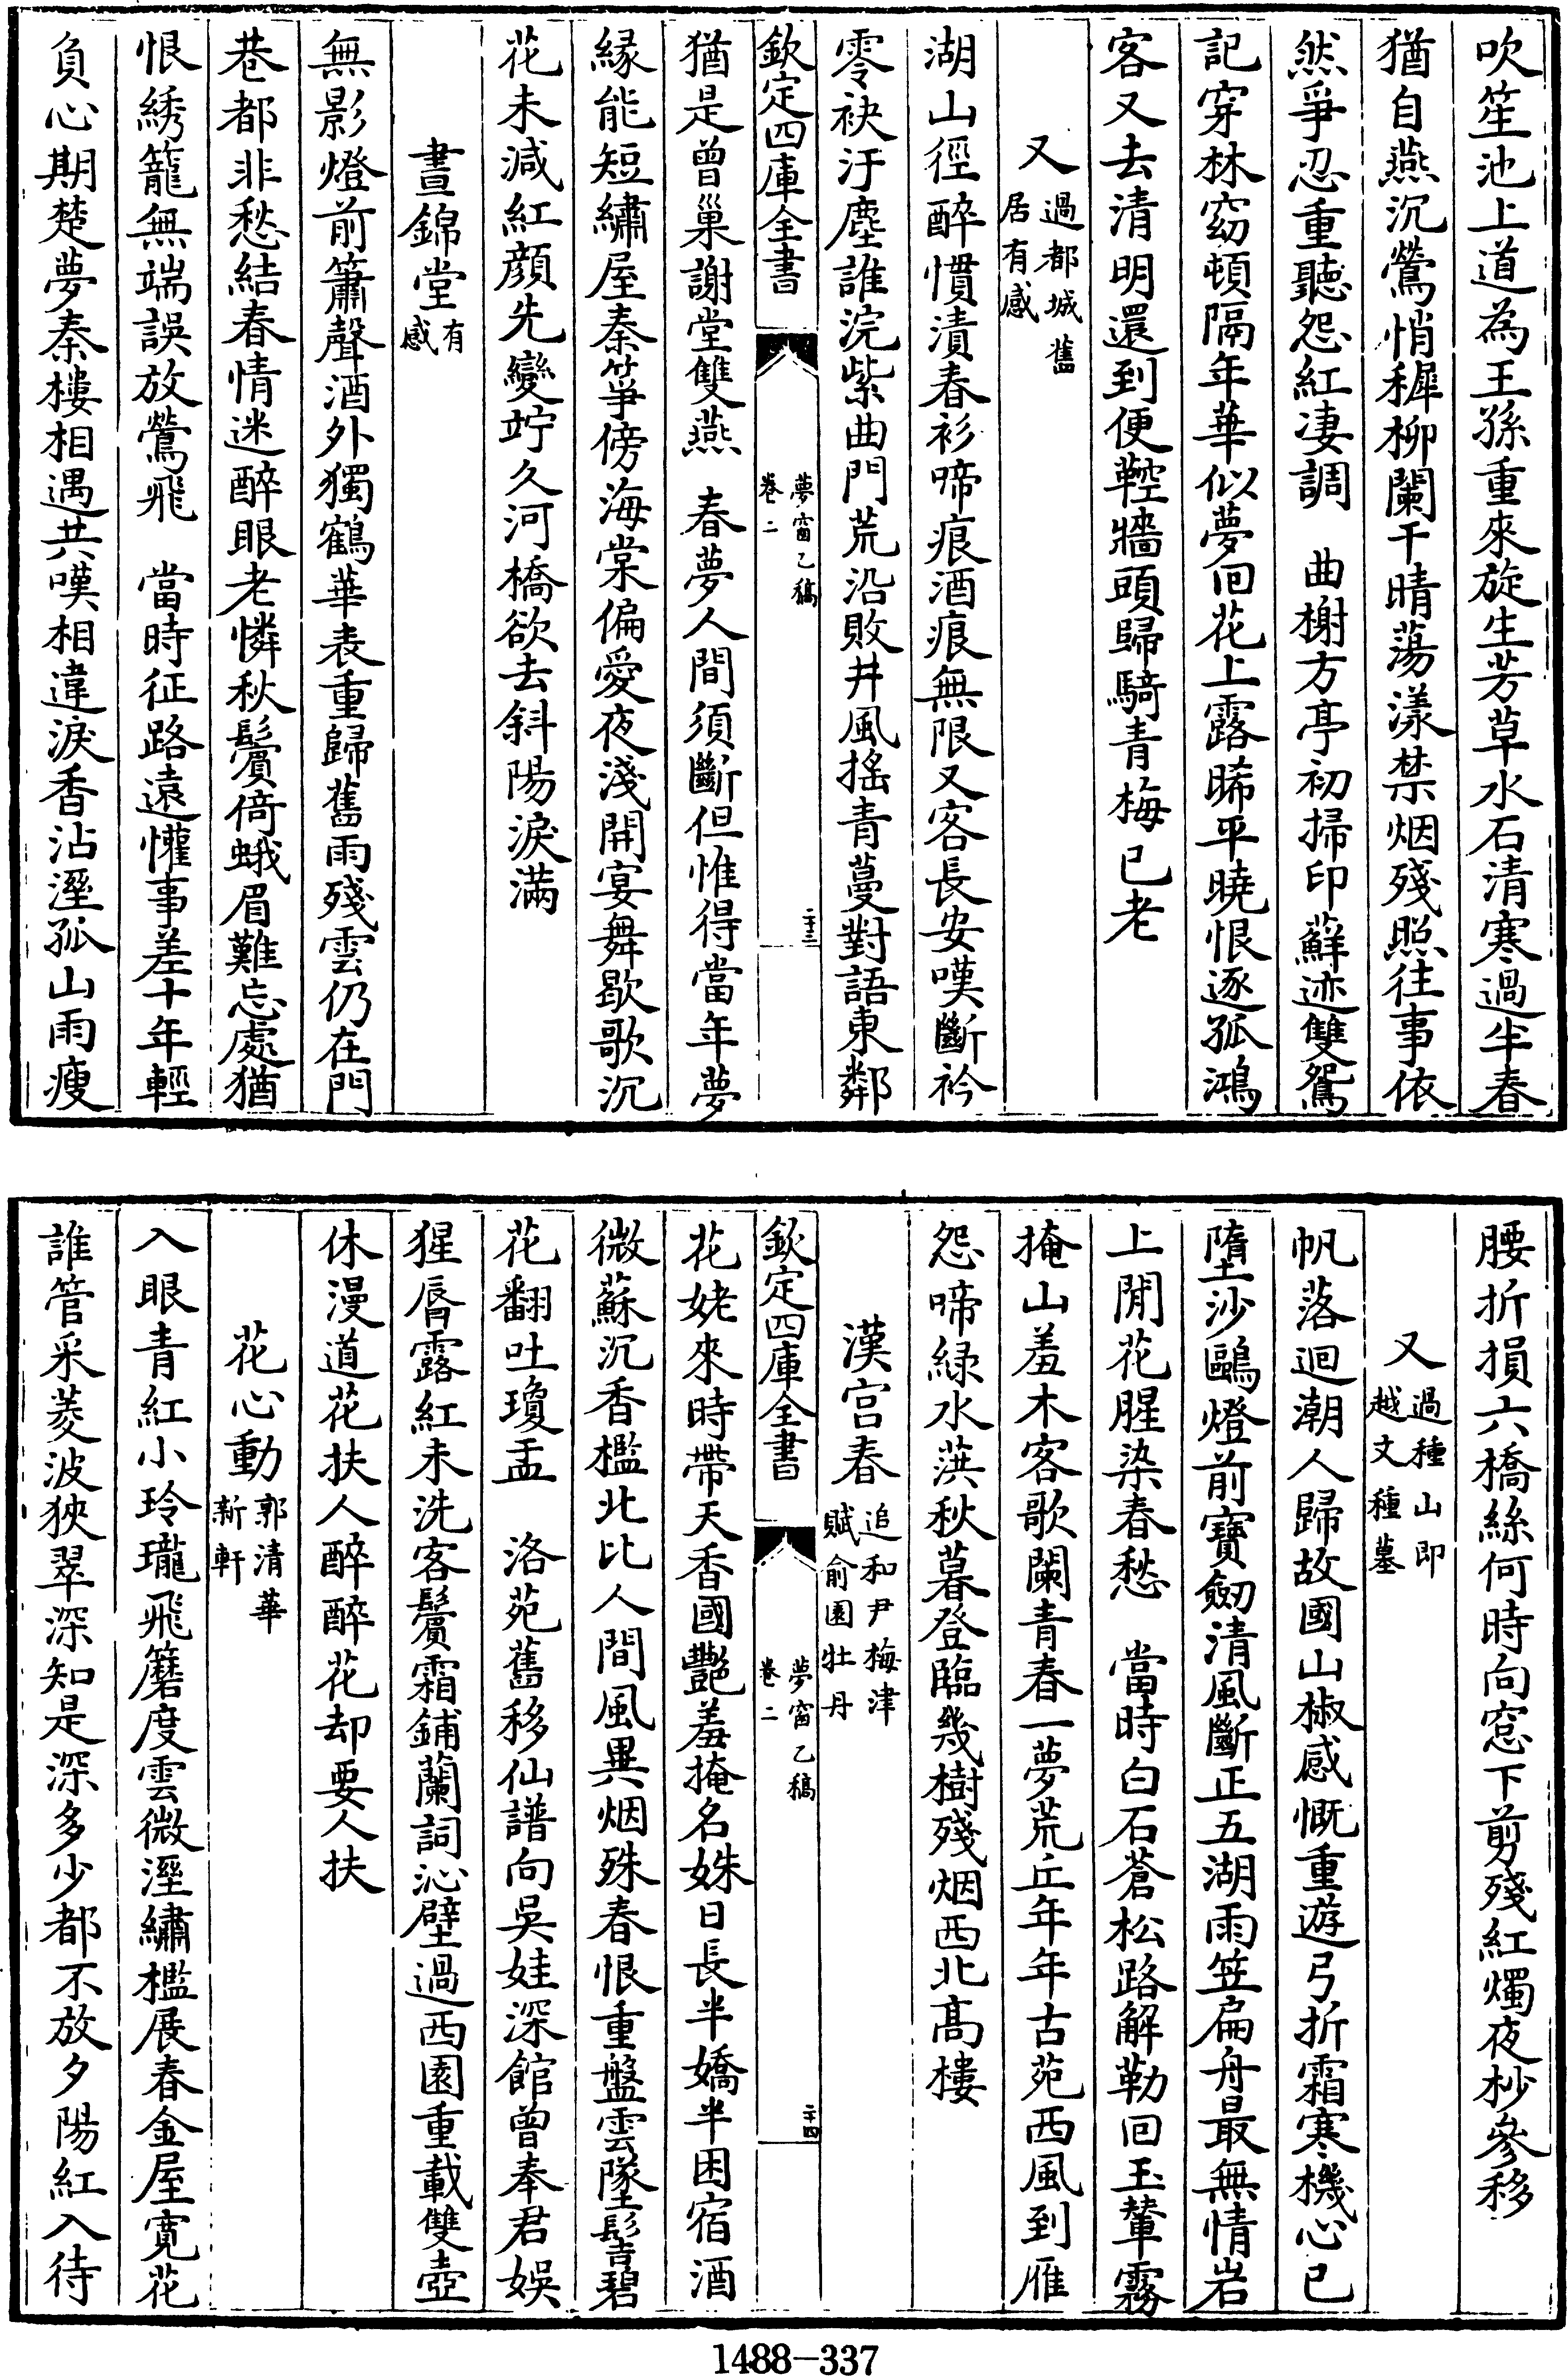 吹笙池上道為王孫重來旋生芳草水石清寒過半春
猶自燕沉鶯悄穉柳闌干晴蕩漾禁烟殘照往事依
然爭忍重聽怨紅凄調　曲榭方亭初掃印蘚迹雙鴛
記穿林窈頓隔年華似夢回花上露晞平曉恨逐孤鴻
客又去清明還到便鞚牆頭歸騎青梅已老
又過都城舊居有感
湖山徑醉慣漬春衫啼痕酒痕無限又客長安嘆斷衿
零袂汙塵誰浣紫曲門荒沿敗井風搖青蔓對語東鄰
欽定四庫全書　夢窗乙稿卷二　二十三
猶是曾巢謝堂雙燕　春夢人間須斷但惟得當年夢
緣能短繡屋秦箏傍海棠偏愛夜淺開宴舞歇歌沉
花未減紅顔先變竚久河橋欲去斜陽淚滿
晝錦堂有感
無影燈前簫聲酒外獨鶴華表重歸舊雨殘雲仍在門
巷都非愁結春情迷醉眼老憐秋鬢倚蛾眉難忘處猶
恨綉籠無端誤放鶯飛　當時征路遠懽事差十年輕
負心期楚夢秦樓相遇共嘆相違淚香沾溼孤山雨瘦
腰折損六橋絲何時向窓下剪殘紅燭夜杪參移
又過種山即越文種墓
帆落迴潮人歸故國山椒感慨重遊弓折霜寒機心已
墮沙鷗燈前寶劒清風斷正五湖雨笠扁舟最無情岩
上閒花腥染春愁　當時白石蒼松路解勒回玉輦霧
掩山羞木客歌闌青春一夢荒丘年年古苑西風到雁
怨啼緑水洪秋暮登臨幾樹殘烟西北髙樓
漢宫春追和尹梅津賦俞園牡丹
欽定四庫全書　夢窗乙稿卷二　二十四
花姥來時帶天香國艷羞掩名姝日長半嬌半困宿酒
微蘇沉香檻北比人間風異烟殊春恨重盤雲墜髻碧
花翻吐瓊盂　洛苑舊移仙譜向吳娃深館曾奉君娛
猩唇露紅未洗客鬢霜鋪蘭詞沁壁過西園重載雙壺
休漫道花扶人醉醉花却要人扶
花心動郭清華新軒
入眼青紅小玲瓏飛簷度雲微溼繡檻展春金屋寛花
誰管采菱波狹翠深知是深多少都不放夕陽紅入待
1488—337